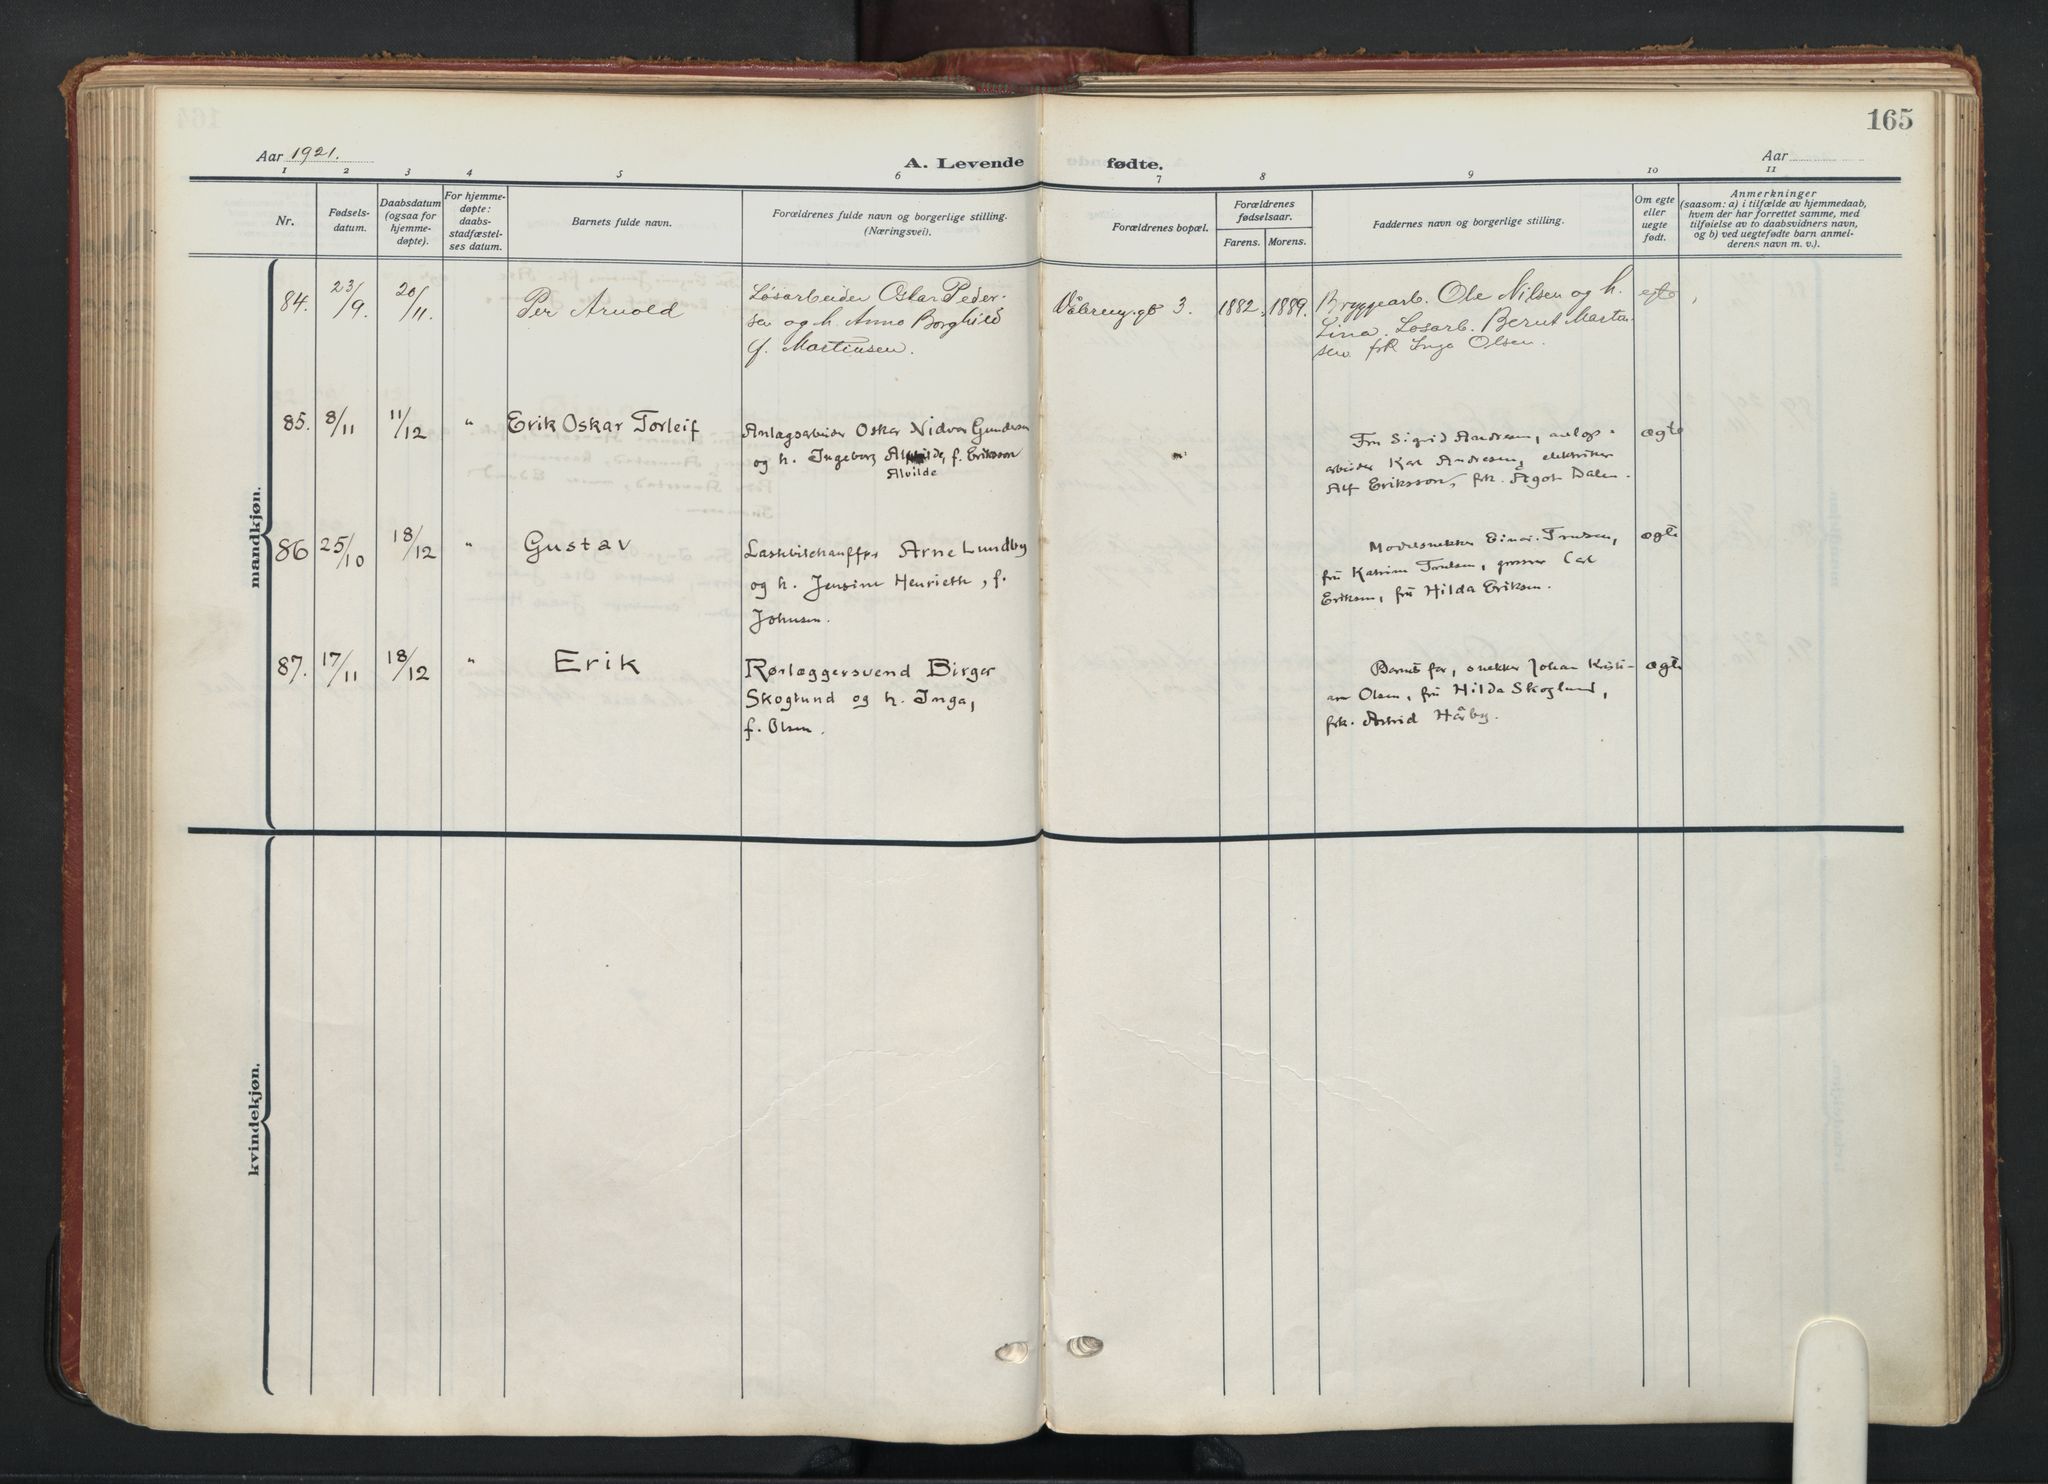 165
Aar 1921.
A. Levende
fødte.
Aar
1 2 3 4 5 6 7 8 9 10 11
Nr.
Fødsels-
datum.
Daabsdatum
(ogsaa for
hjemme-
døpte).
For hjemme-
døpte:
daabs-
stadfæstel-
ses datum.
Barnets fulde navn.
Forældrenes fulde navn og borgerlige stilling.
(Næringsvei).
Forældrenes bopæl.
Forældrenes
fødselsaar.
Farens. Morens.
Faddernes navn og borgerlige stilling.
Om egte
eller
uegte
født.
Anmerkninger
(saasom: a) i tilfælde av hjemmedaab,
hvem der har forrettet samme, med
tilføielse av to daabsvidners navn,
og b) ved uegtefødte barn anmel-
derens navn m. v.).
mandkjøn.
84. 23/9. 20/11. Per Arnold
Løsarbeider Oskar Peder-
sen og h. Anna Borghild
f. Martinsen.
3. 1882. 1889.
Bryggearb. Ole Nilsen og h.
Lina. Løsarb. Bernt
sen frk Inga Olsen.
egte
85. 8/11 11/12 " Erik Oskar Torleif
Anlægsarbeider Oskar Nidvar Gundersen
og h. Ingeborg f. Eriksson
Alvilde
Fru Sigrid Andresen,
arbeider Karl Andresen, elektriker
Alf Eriksson, frk. Ågot Dalen.
ægte
86 25/10 18/12 " Gustav
Lastbilchauffør Arne Lundby
og h. Jensine Henriette, f.
Johnsen.
Modelsnekker Einar Trulsen,
fru Katrine Trulsen, grosser Carl
Eriksen, fru Hilda Eriksen.
ægte
87. 17/11 18/12 " Erik
Rørlæggersvend Birger
Skoglund og h. Inga,
f. Olsen.
Barnets far, snekker Johan Kristi-
an Olsen, fru Hilda Skoglund,
frk. Astrid Hårby.
ægte
kvindekjøn.